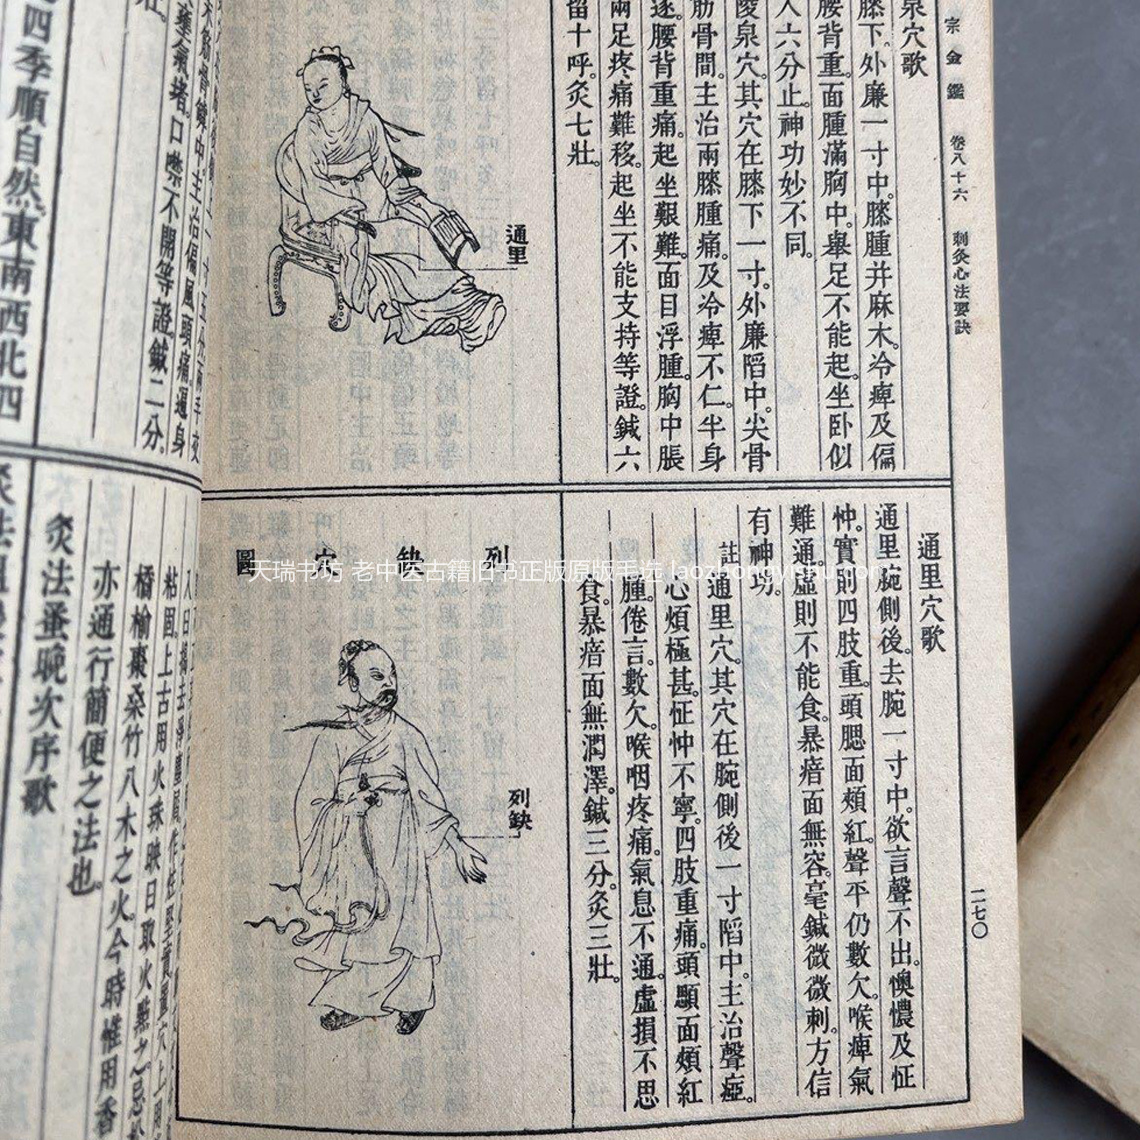 宗金鑑 卷八十六 刺灸心法要訣
二七〇
泉穴歌
膝下外廉一寸中。膝腫并麻木。冷痺及偏
腰背重。面腫滿胸中。舉足不能起。坐卧似
人。六分止。神功妙不同。
陵泉穴。其穴在膝下一寸。外廉陷中。尖骨
筋骨間。主治兩膝腫痛。及冷痺不仁。半身
遂。腰背重痛。起坐艱難。面目浮腫。胸中脹
兩足疼痛難移。起坐不能支持等證。鍼六
留十呼。灸七壯。
通里
通里穴歌
通里腕側後。去腕一寸中。欲言聲不出。懊憹及怔
忡。實則四肢重。頭腮面頰紅。聲平仍數欠。喉痺氣
難通。虛則不能食。暴瘖面無容。毫鍼微微刺。方信
有神功。
註通里穴。其穴在腕側後一寸陷中。主治聲瘂。
心煩極甚。怔忡不寧。四肢重痛。頭顋面頰紅
腫。倦言。數欠。喉咽疼痛。氣息不通。虛損不思
食。暴瘖面無潤澤。鍼三分。灸三壯。
列缺穴圖
列缺
天瑞书坊 老中医古籍旧书正版原版毛选
主治偏風頭痛。遍身
壅氣堵。口噤不開等證。鍼二分。
壯。
四季順自然。東南西北四
枯固。上古用火珠映日取火點之。忌松
橘榆棗桑竹八木之火。今時惟用香
亦通行簡便之法也。
灸法蚤晚次序歌